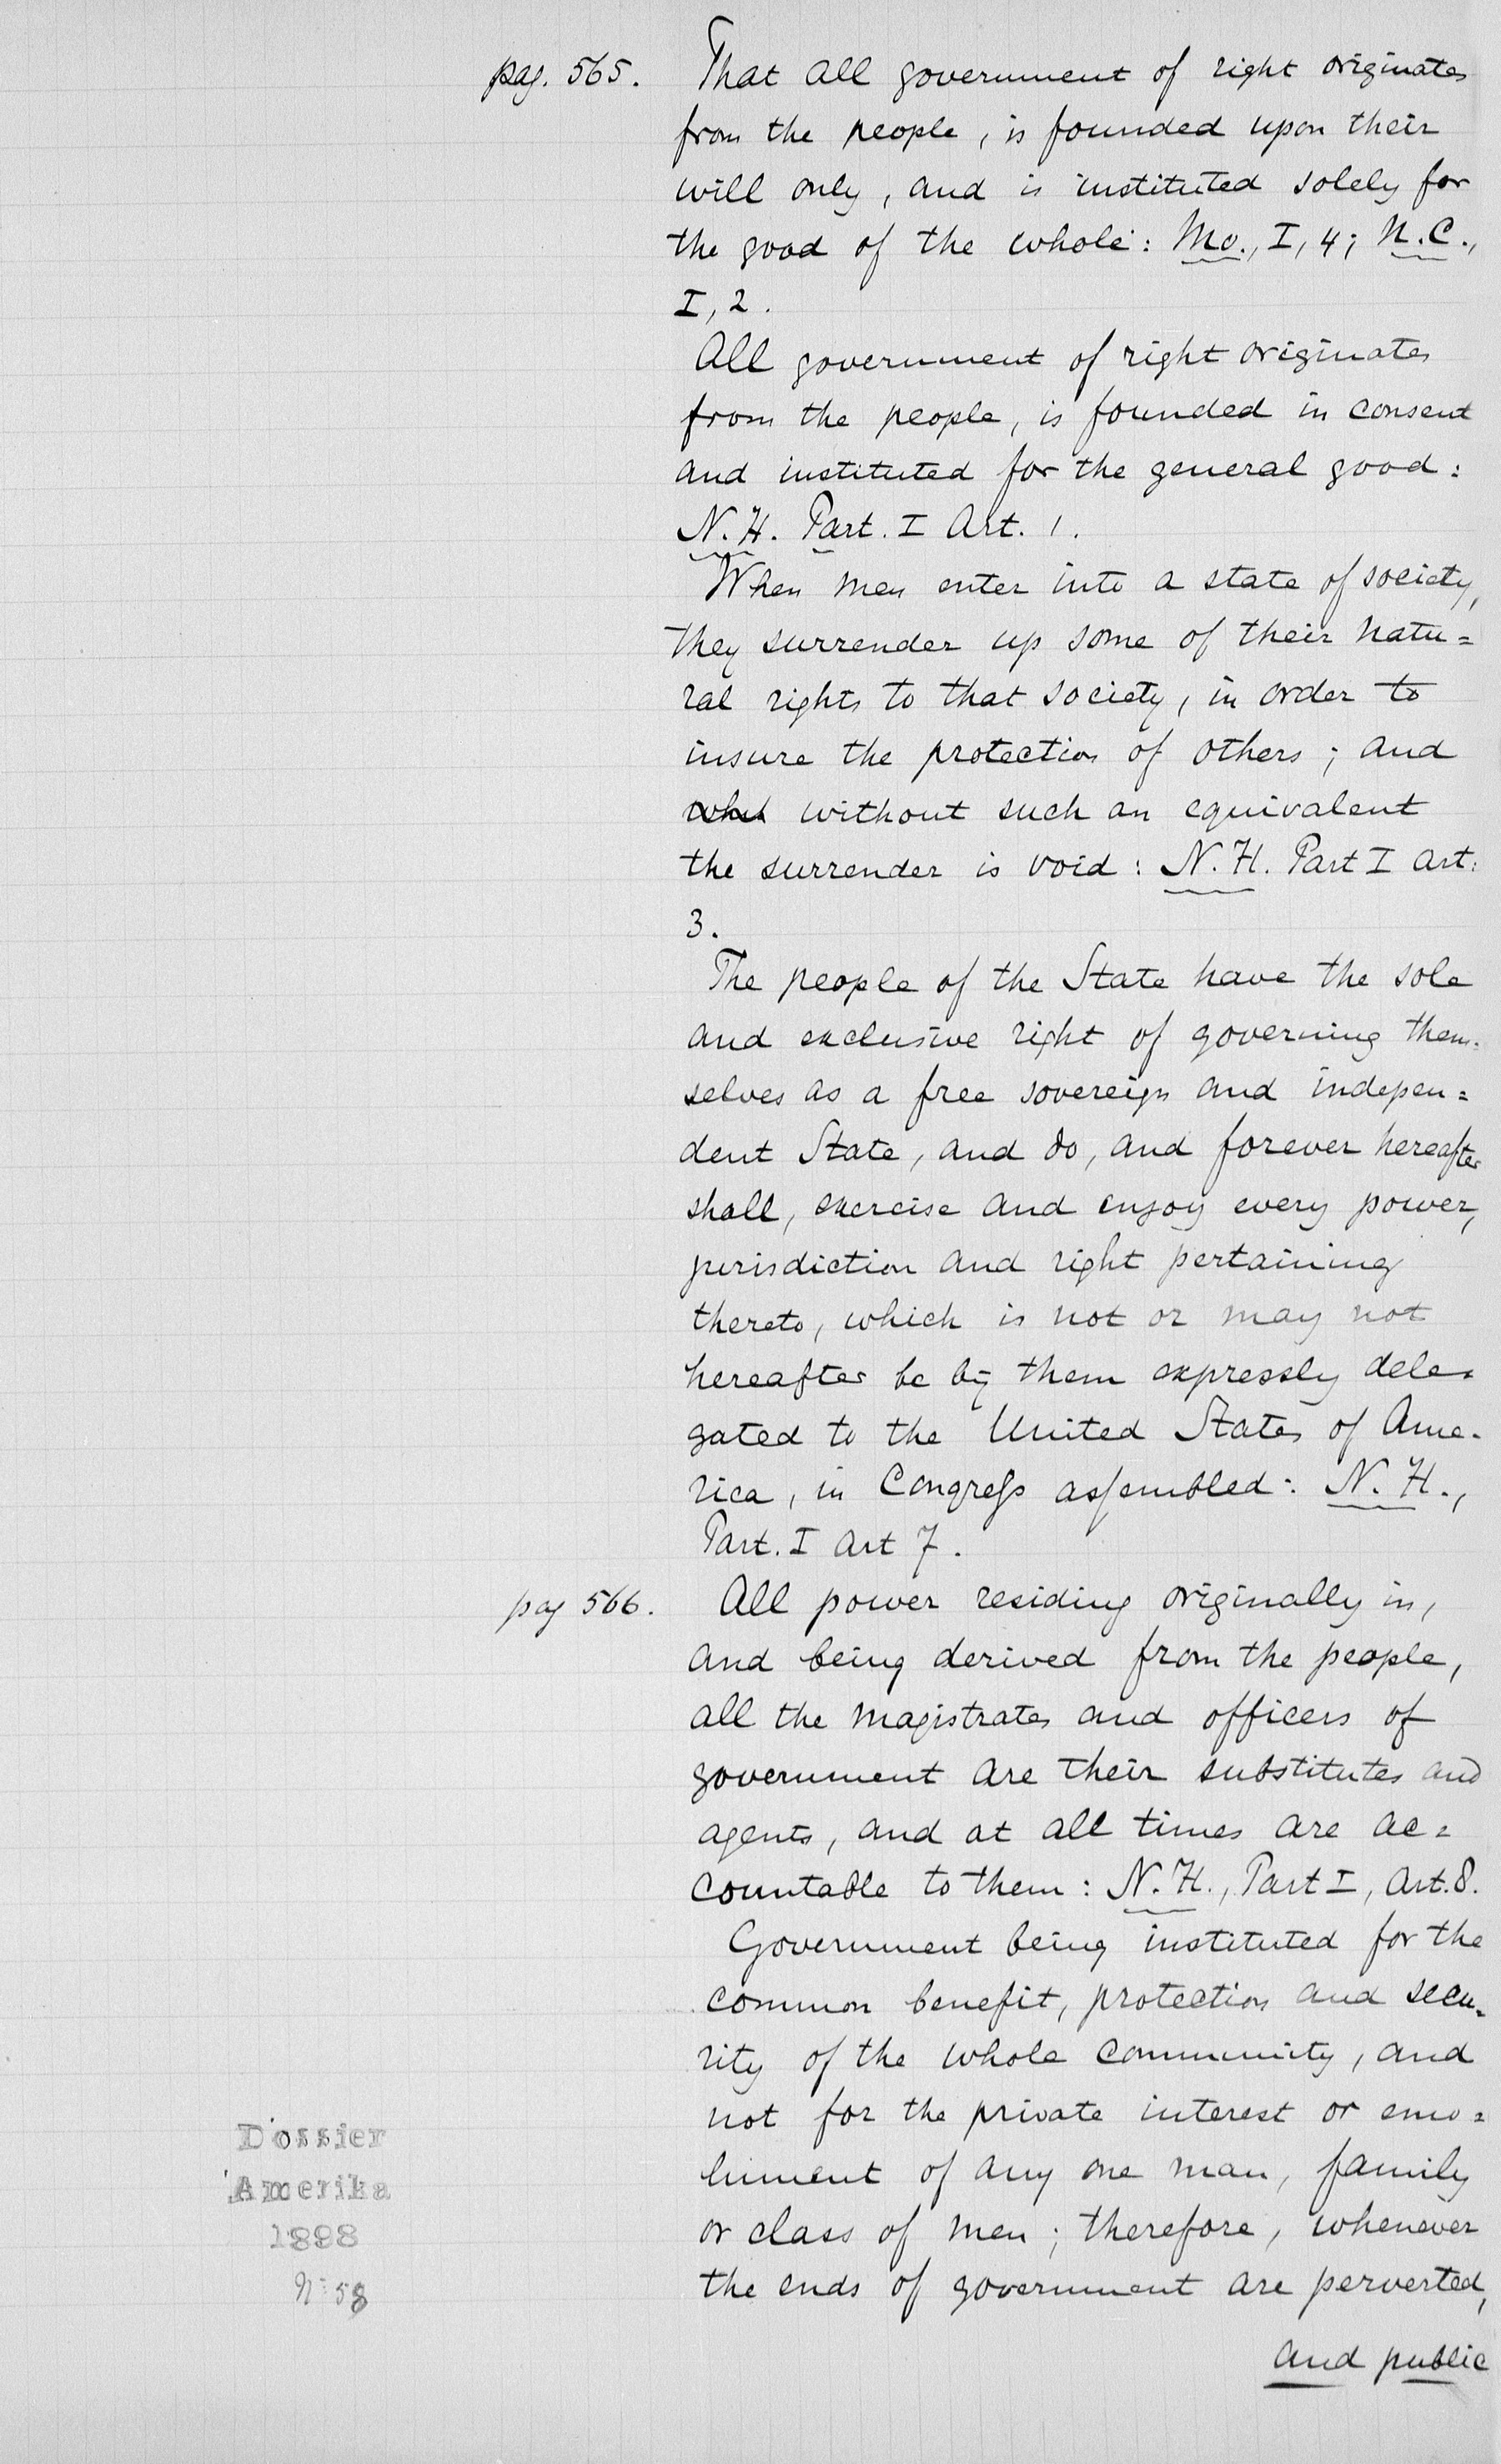 pag. 565. That all government of right originates
from the people, is founded upon their
will only, and is instituted solely for
the good of the whole: Mo., I, 4; N.C.,
I, 2.
All government of right originates
from the people, is founded in consent
and instituted for the general good:
N.H. Part. I Art. 1.
When men enter into a state of society,
they surrender up some of their natu=
ral rights to that society, in order to
insure the protection of others; and
without such an equivalent
the surrender is void: N.H. Part I art:
3.
The people of the State have the sole
and exclusive right of governing them=
selves as a free sovereign and indepen=
dent State, and do, and forever hereafter
shall, exercise and enjoy every power,
jurisdiction and right pertaining
thereto, which is not or may not
hereafter be by them expressly dele=
gated to the United States of Ame=
rica, in Congress assembled: N.H.,
Part. I art 7.
pag 566. All power residing originally in,
and being derived from the people,
all the magistrates and officers of
government are their substitutes and
agents, and at all times are ac=
countable to them: N.H., Part I, art. 8.
Government being instituted for the
common benefit, protection and secu=
rity of the whole community, and
not for the private interest or emo=
lument of any one man, family
or class of men; therefore, whenever
the ends of government are perverted,
and public
Dossier
Amerika
1898
No 58